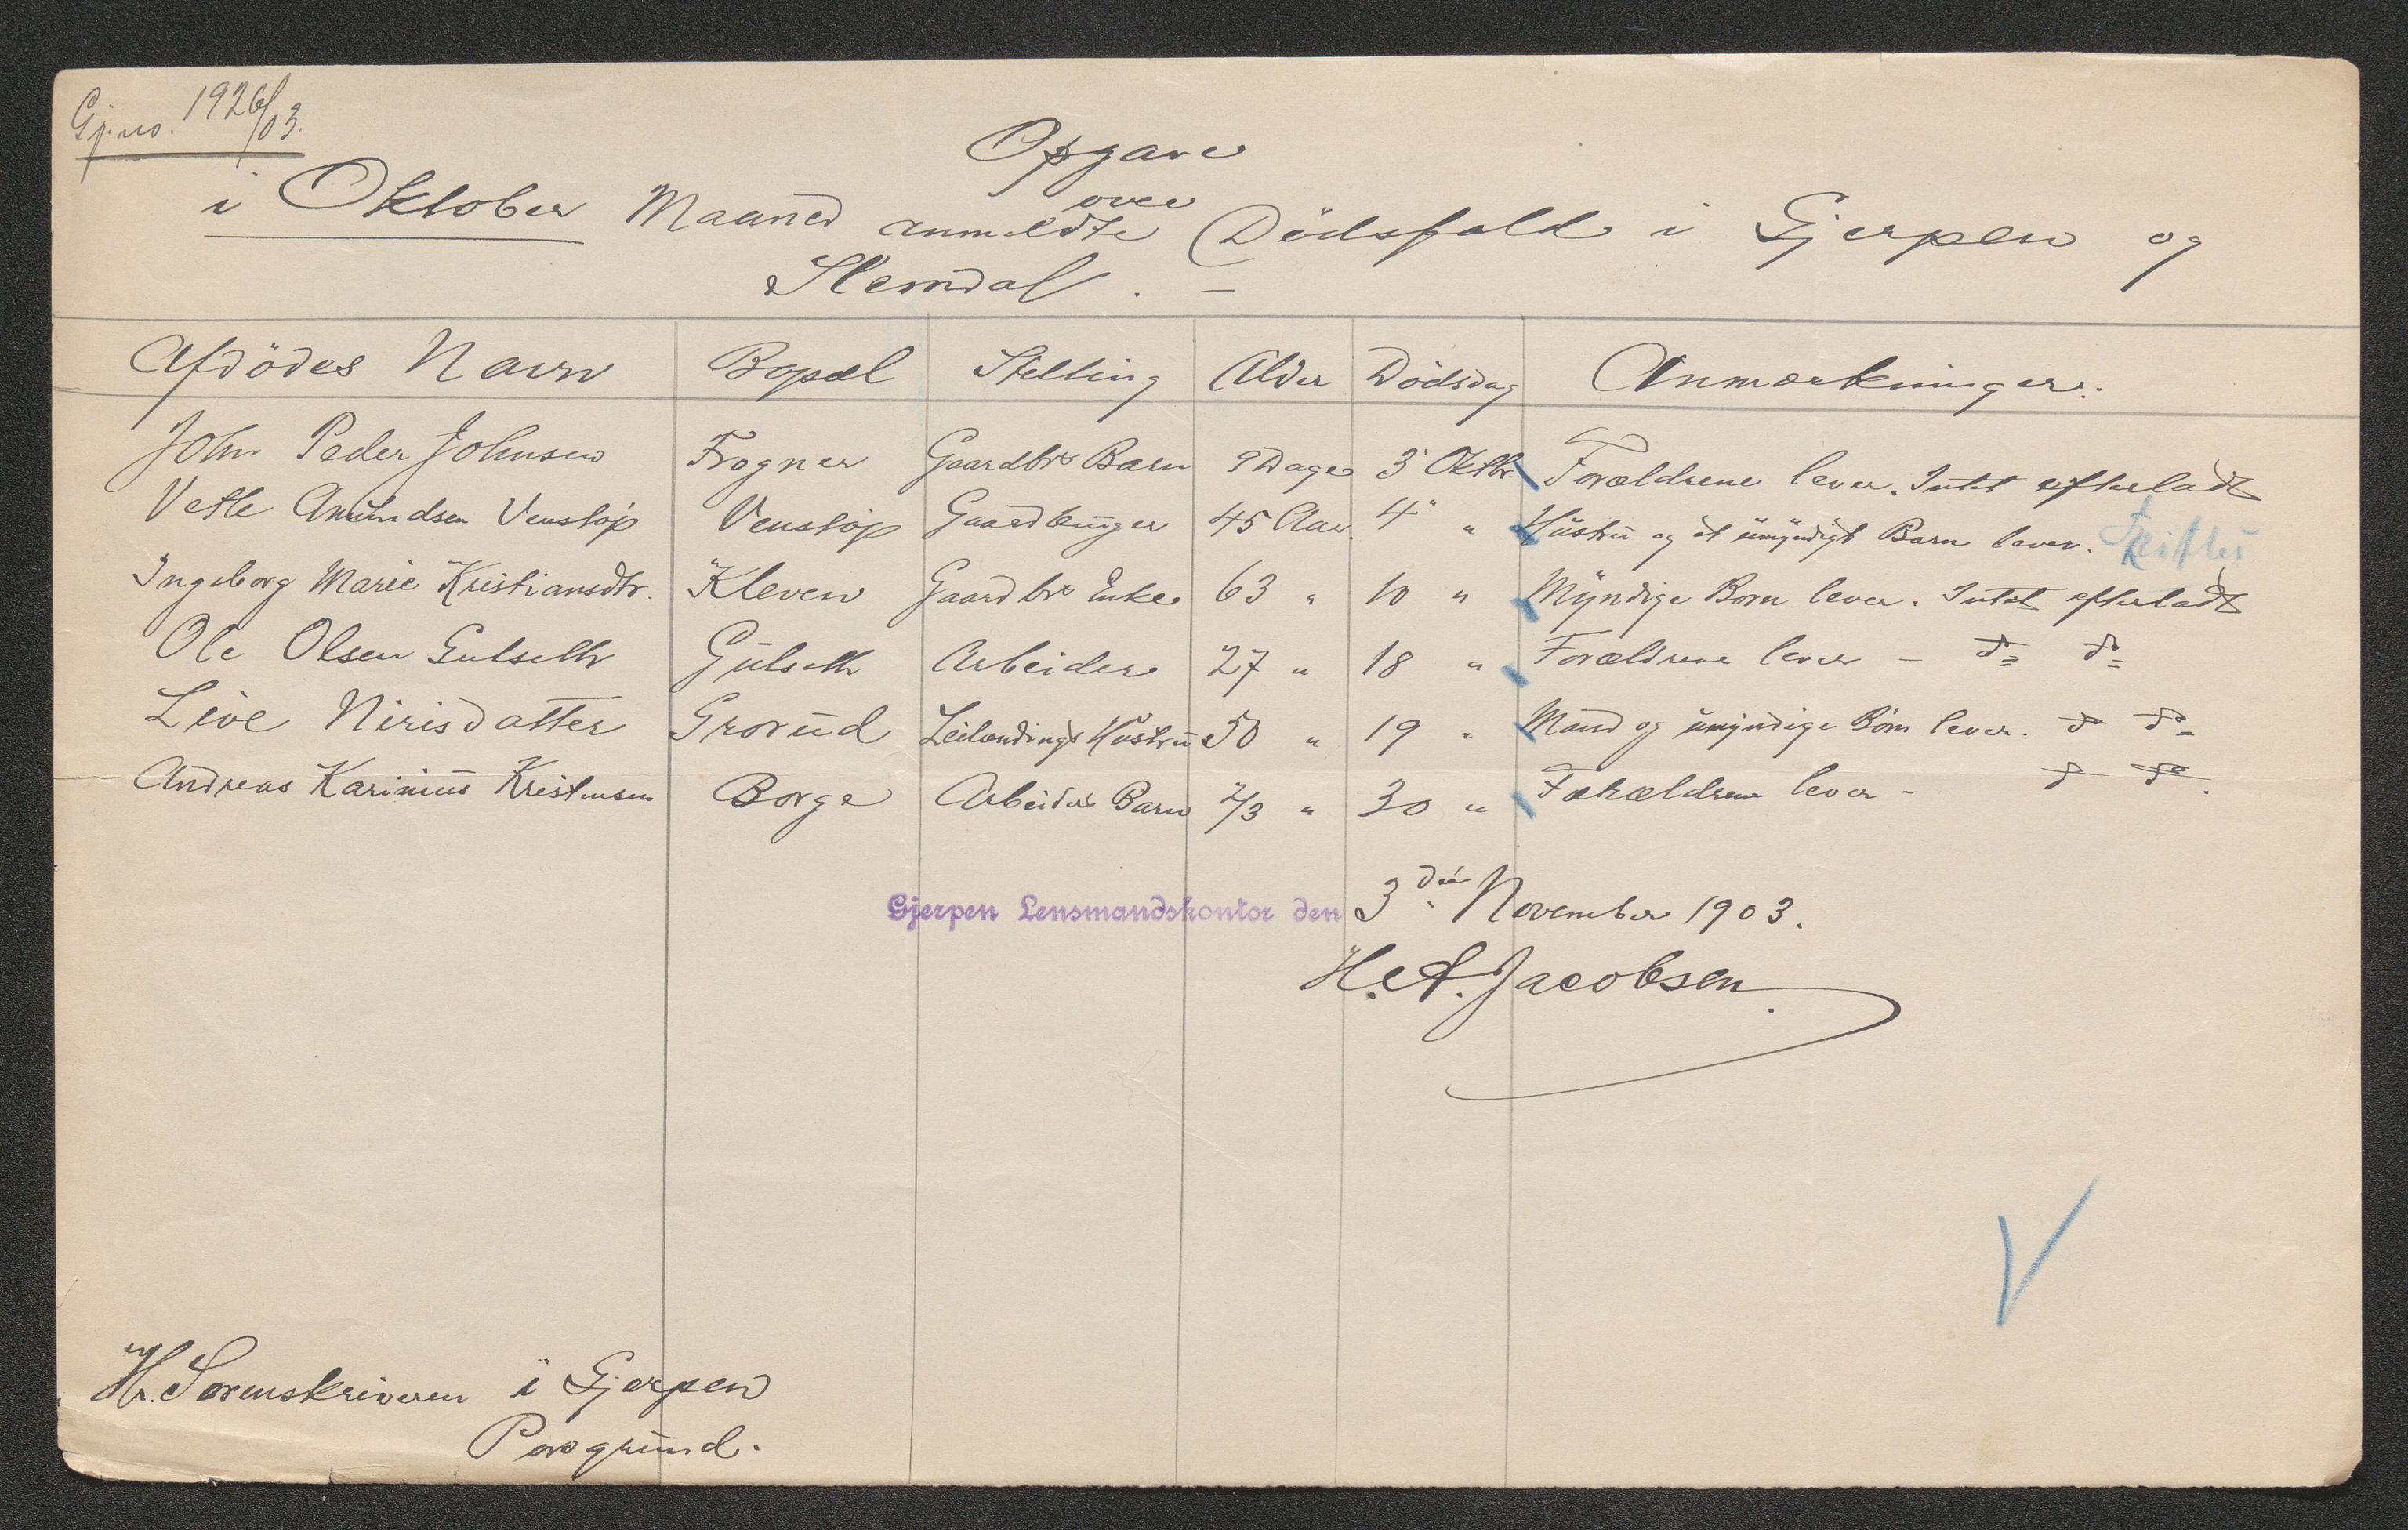 Gj.no. 1926/03.
Opgave
over
i Oktober Maaned anmeldte Dödsfald i Gjerpen og
Slemdal. -
Afdödes Navn Bopæl Stilling Alder Dödsdag Anmærkninger.
John Peder Johnsen Frogner Gaardbrs Barn 9 Dage 3 Oktbr. Forældrene lever. Intet efterladt
Vetle Amundsen Venstöp Venstöp Gaardbruger 45 Aar. 4 " Hustru og et umyndigt Barn lever. Skifte
Ingeborg Marie Kristiansdtr. Kleven Gaardbrs Enke 63 " 10 " Myndige Born lever. Intet efterladt
Ole Olsen Gulseth Gulseth Arbeider 27 " 18 " Forældrene lever - do do
Live Nirisdatter Grorud Leilændings Hustru 50 " 19 " Mand og umyndige Börn lever. do do
Andreas Karinius Kristensen Borge Arbeiders Barn 2/3 " 30 " Forældrene lever - do do.
Gjerpen Lensmandskontor den 3die November 1903.
H.A. Jacobsen.
Hr. Sorenskriveren i Gjerpen
Porsgrund.